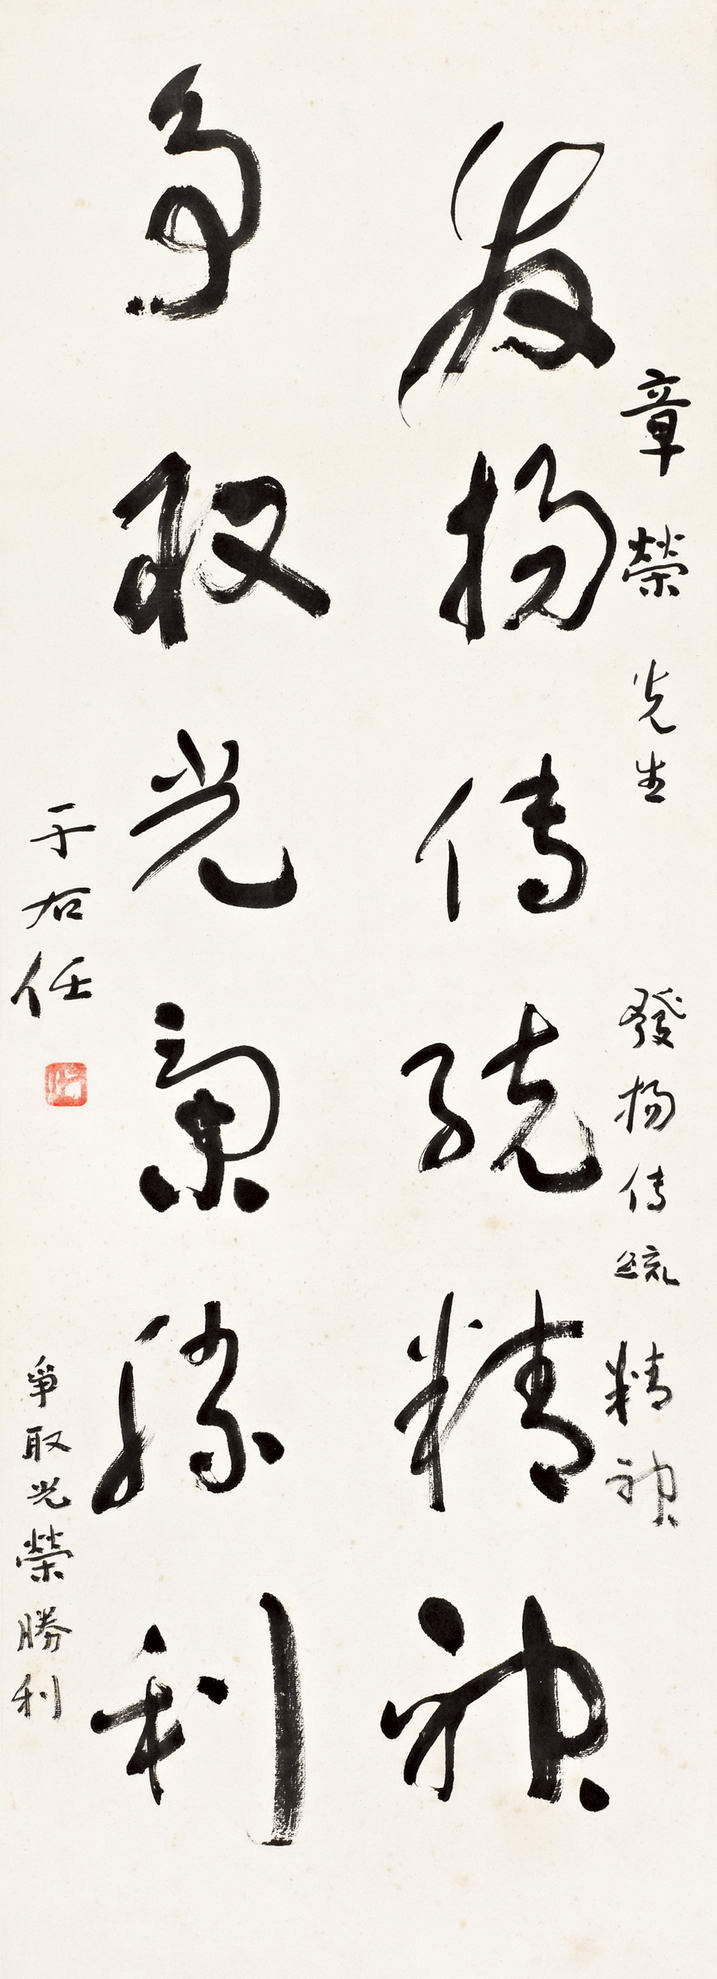 章榮先生
發揚傳統精神
發揚傳統精神
爭取光榮勝利
于右任
爭取光榮勝利